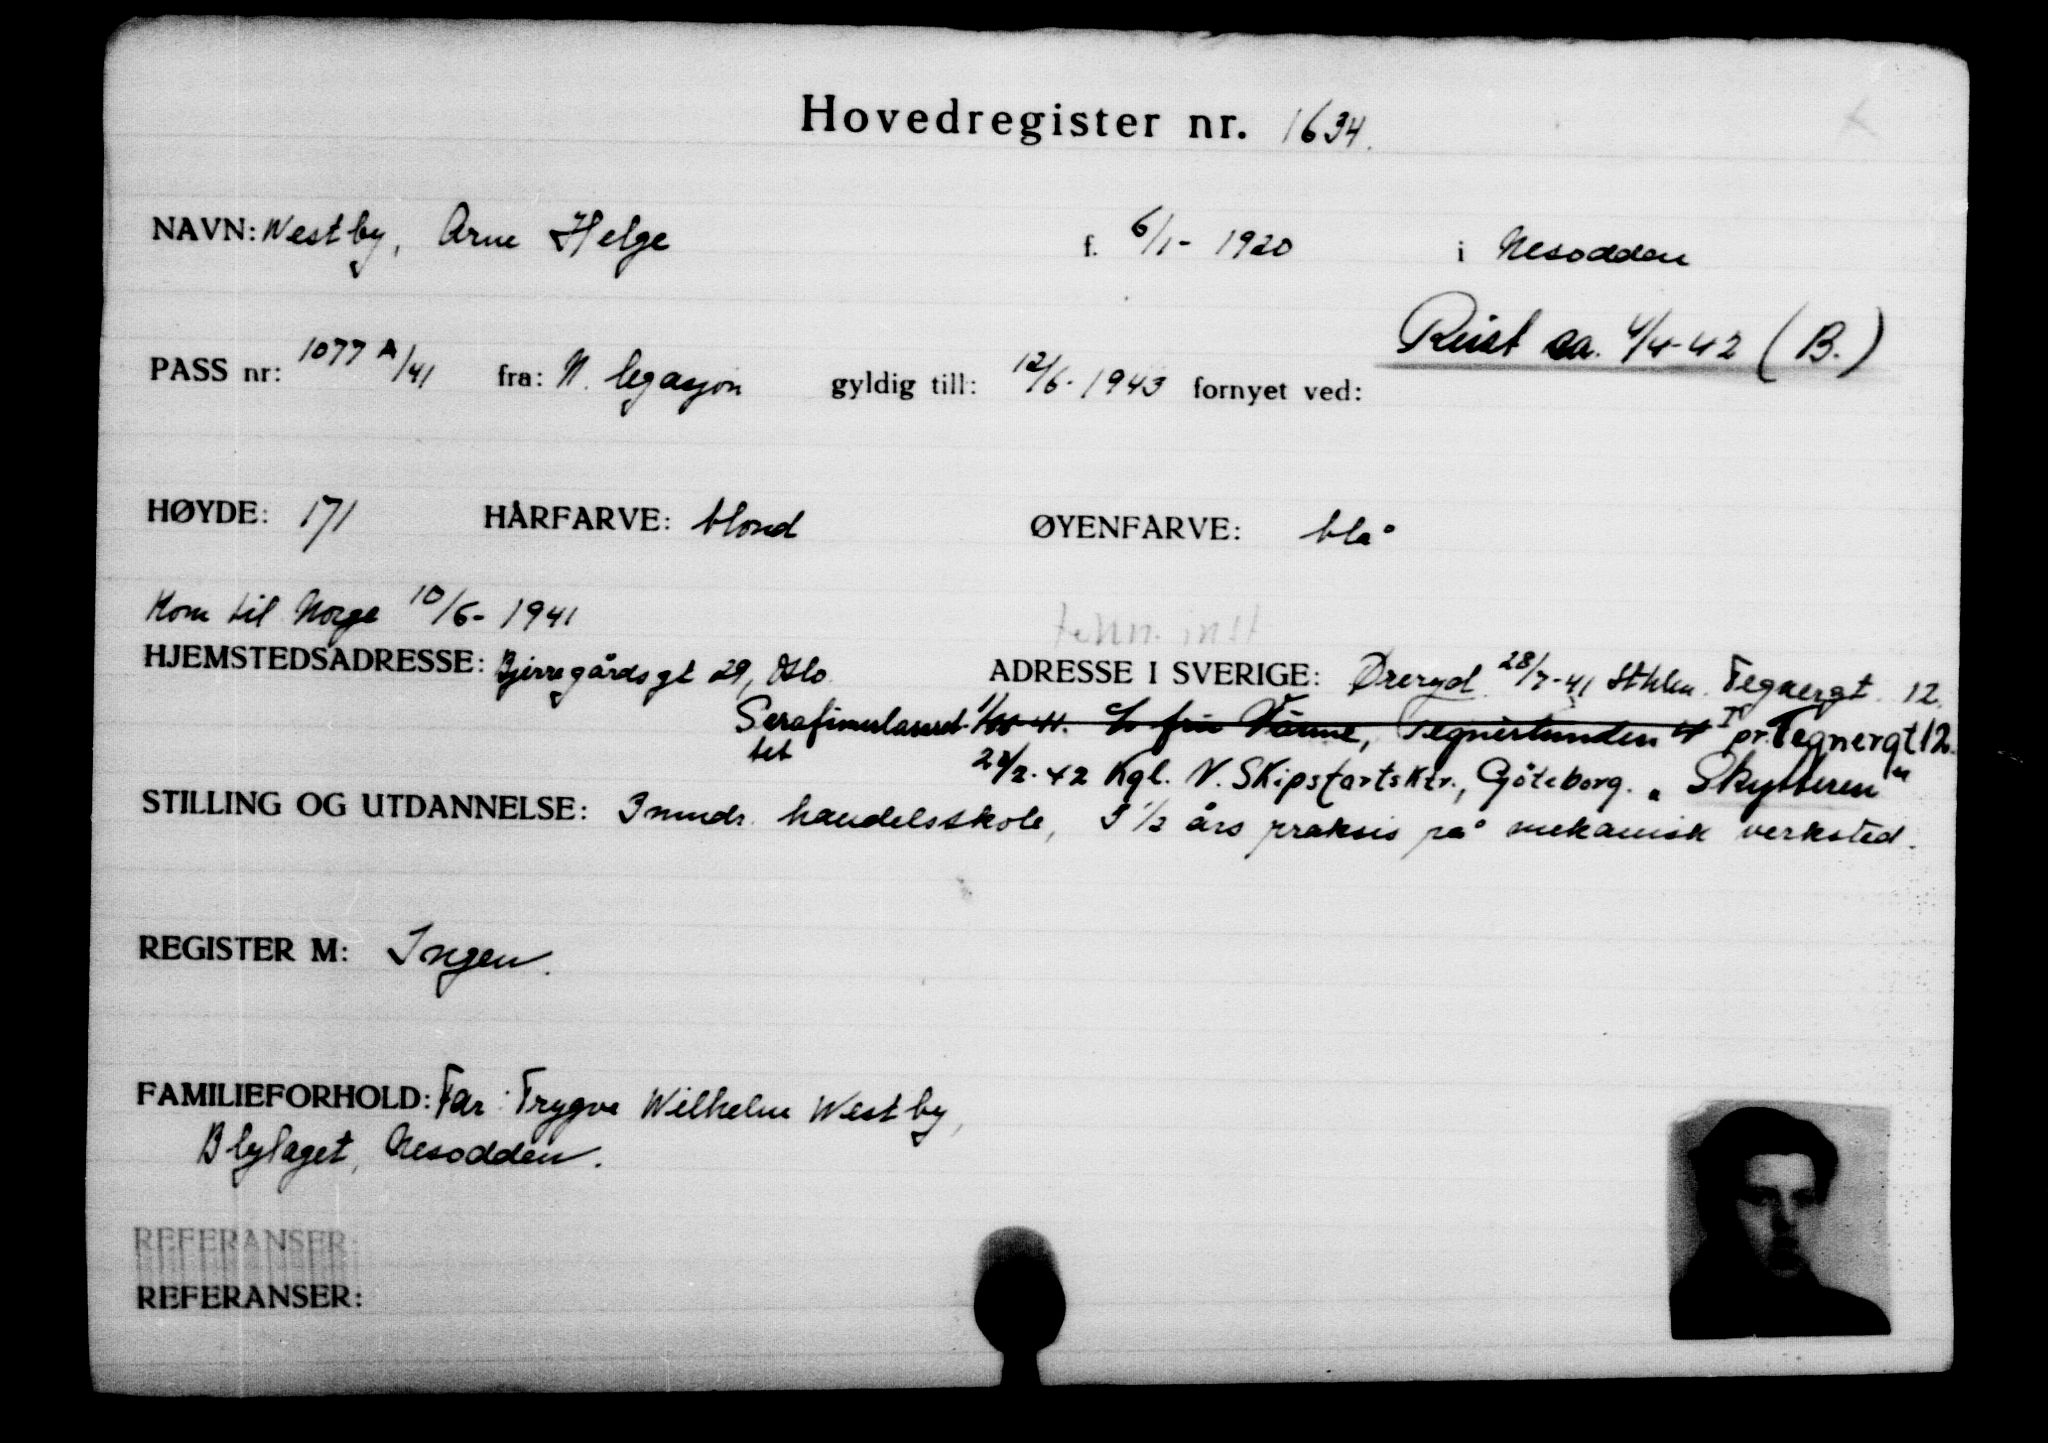 Hovedregister nr. 1634.
NAVN: Westby, Arne Helge f. 6/1- 1920 i Nesodden
Reist ca. 4/4-42 (B.)
PASS nr: 1077 A/41 fra: N. legasjon gyldig till: 12/6- 1943 fornyet ved:
HØYDE: 171 HÅRFARVE: blond ØYENFARVE: blå
Kom til Norge 10/6- 1941
HJEMSTEDSADRESSE: Bjerregårdsgt 29, Oslo ADRESSE I SVERIGE: Øreryd 28/7-41 Sthlm. Tegnergt. 12.
Serafimerlasaret- 41. c/o fru Tegnerlunden 4 pr. Tegnergt 12.
tet
Kgl. N. Skipsfartsktr., Göteborg. "Skytteren"
STILLING OG UTDANNELSE: 3 mndr. handelsskole, 3 1/2 års praksis på mekanisk verksted.
REGISTER M: Ingen.
FAMILIEFORHOLD: Far: Trygve Wilhelm Westby,
Blylaget, Nesodden.
REFERANSER:
REFERANSER: